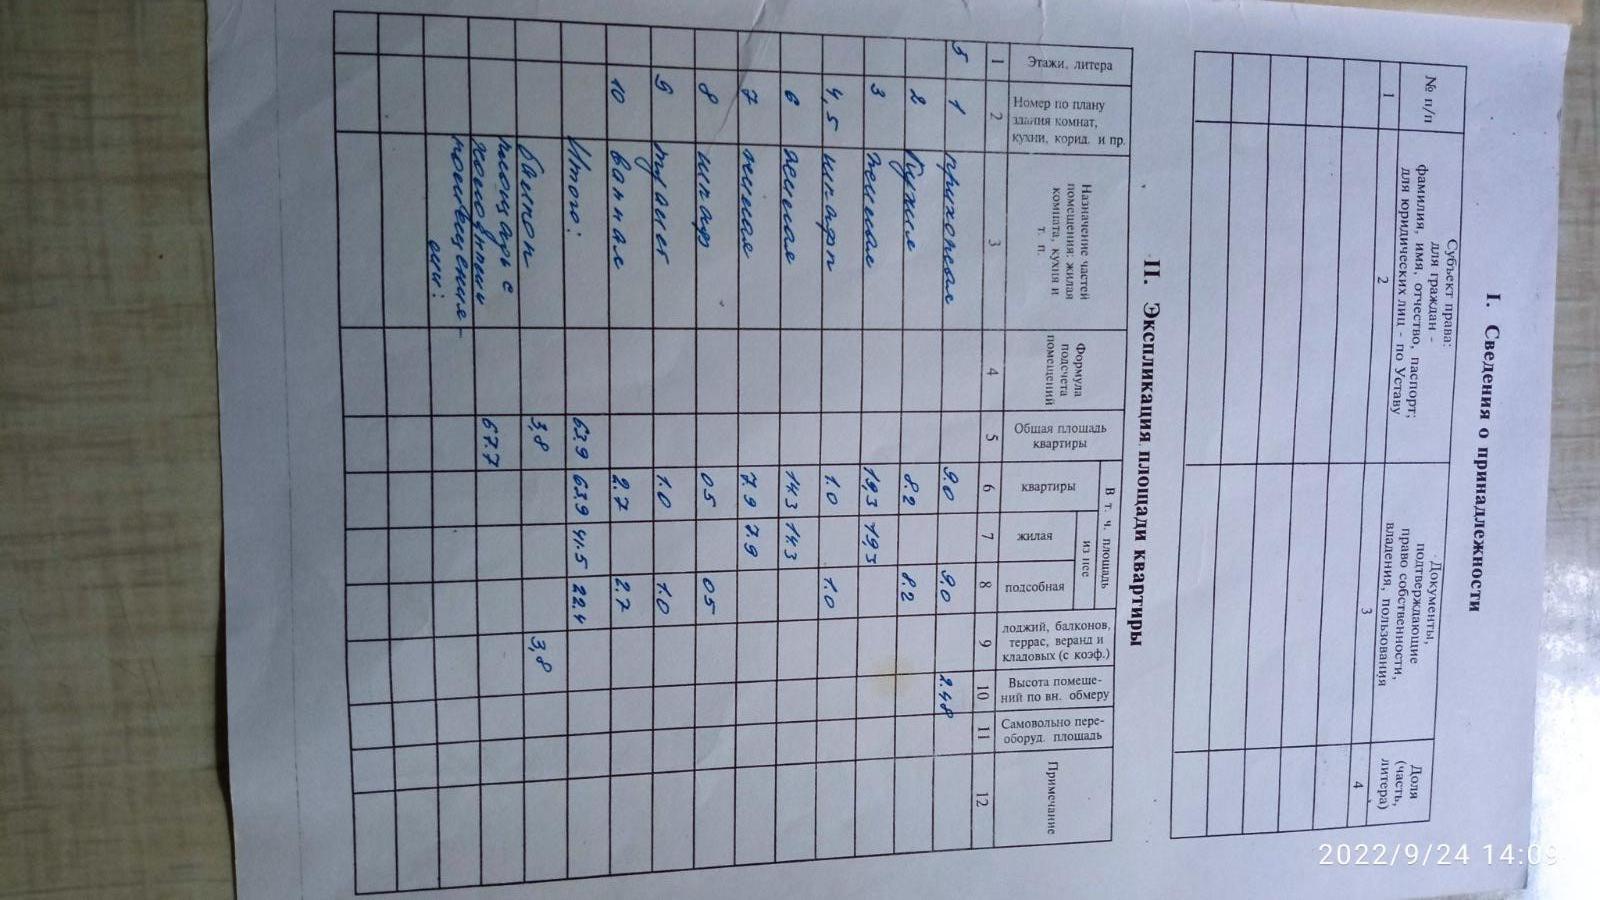 I. Сведения о принадлежности
№ п/п
Субъект права:
для граждан -
фамилия, имя, отчество, паспорт;
для юридических лиц - по Уставу
Документы,
подтверждающие
право собственности,
владения, пользования
Доля
(часть,
литера)
1 2 3 4
II. Экспликация площади квартиры
Этажи, литера
Номер по плану
здания комнат,
кухни, корид. и пр.
Назначение частей
помещения: жилая
комната, кухня и
т. п.
Формула
подсчета
помещений
Общая площадь
квартиры
В т. ч. площадь
квартиры
из нее
жилая
подсобная
лоджий, балконов,
террас, веранд и
кладовых (с коэф.)
Высота помеще-
ний по вн. обмеру
Самовольно пере-
оборуд. площадь
Примечание
1 2 3 4 5 6 7 8 9 10 11 12
5 1 прихожая 9.0 9.0 2.48
2 кухня 8.2 8.2
3 жилая 19,3 19,3
4,5 шкафы 1.0 1.0
6 жилая 14.3 14.3
7 жилая 7.9 7.9
8 шкаф 05 05
9 туалет 1.0 1.0
10 ванная 2.7 2.7
Итого: 63.9 63.9 41.5 22.4
балкон 3,8 3,8
площадь с 67.7
холодными
помещения-
ми:
2022/9/24 14:09